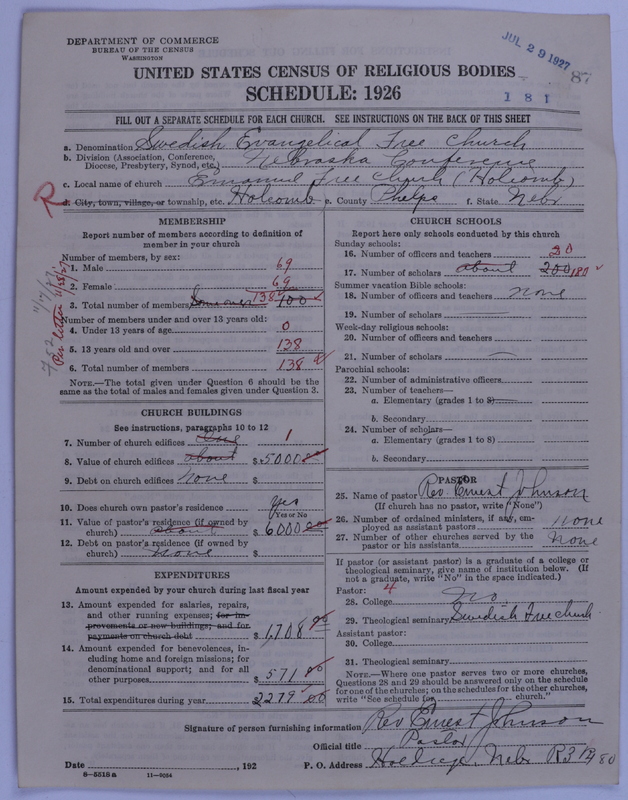 DEPARTMENT OF COMMERCE
BUREAU OF THE CENSUS
WASHINGTON
JUL 29 1927
87
181
UNITED STATES CENSUS OF RELIGIOUS BODIES
SCHEDULE: 1926
FILL OUT A SEPARATE SCHEDULE FOR EACH CHURCH. SEE INSTRUCTIONS ON THE BACK OF THIS SHEET
a. Denomination Swedish Evangelical Free Church
b. Division (Association, Conference, Diocese, Presbytery, Synod, etc.) Nebraska Conference
c. Local name of church Emanuel Free Church (Holcomb)
R
d. City, town, village, or township, etc. Holcomb e. County Phelps f. State Nebr
MEMBERSHIP
Report number of members according to definition of
member in your church
Number of members, by sex:
1. Male 69
2. Female 69
3. Total number of members Some over 138 100
Number of members under and over 13 years old:
4. Under 13 years of age 0
5. 13 years old and over 138
6. Total number of members 138
NOTE.—The total given under Question 6 should be the
same as the total of males and females given under Question 3.
Per letter 11/15/27
CHURCH BUILDINGS
See instructions, paragraphs 10 to 12
7. Number of church edifices One 1
8. Value of church edifices about $ 5000 00
9. Debt on church edifices none $
10. Does church own pastor's residence yes
Yes or No
11. Value of pastor's residence (if owned by
church) about $ 6000 00
12. Debt on pastor's residence (if owned by
church) none $
EXPENDITURES
Amount expended by your church during last fiscal year
13. Amount expended for salaries, repairs,
and other running expenses; for im-
provements or new buildings; and for
payments on church debt $ 1,708 00
14. Amount expended for benevolences, in-
cluding home and foreign missions; for
denominational support; and for all
other purposes $ 571 00
15. Total expenditures during year 2279 00
CHURCH SCHOOLS
Report here only schools conducted by this church
Sunday schools:
16. Number of officers and teachers 20
17. Number of scholars about 200 180
Summer vacation Bible schools:
18. Number of officers and teachers none
19. Number of scholars
Week-day religious schools:
20. Number of officers and teachers
21. Number of scholars
Parochial schools:
22. Number of administrative officers
23. Number of teachers—
a. Elementary (grades 1 to 8)
b. Secondary
24. Number of scholars—
a. Elementary (grades 1 to 8)
b. Secondary
PASTOR
25. Name of pastor Rev. Ernest Johnson
(If church has no pastor, write "None")
26. Number of ordained ministers, if any, em-
ployed as assistant pastors none
27. Number of other churches served by the
pastor or his assistants none
If pastor (or assistant pastor) is a graduate of a college or
theological seminary, give name of institution below. (If
not a graduate, write "No" in the space indicated.)
Pastor: 4
28. College No.
29. Theological seminary Swedish Free Church
Assistant pastor:
30. College
31. Theological seminary
NOTE.—Where one pastor serves two or more churches,
Questions 28 and 29 should be answered only on the schedule
for one of the churches; on the schedules for the other churches,
write "See schedule for church."
Signature of person furnishing information Rev Ernest Johnson
Official title Pastor
Date , 192 P. O. Address Nebr R3 B 80
8—5518a 11—9034